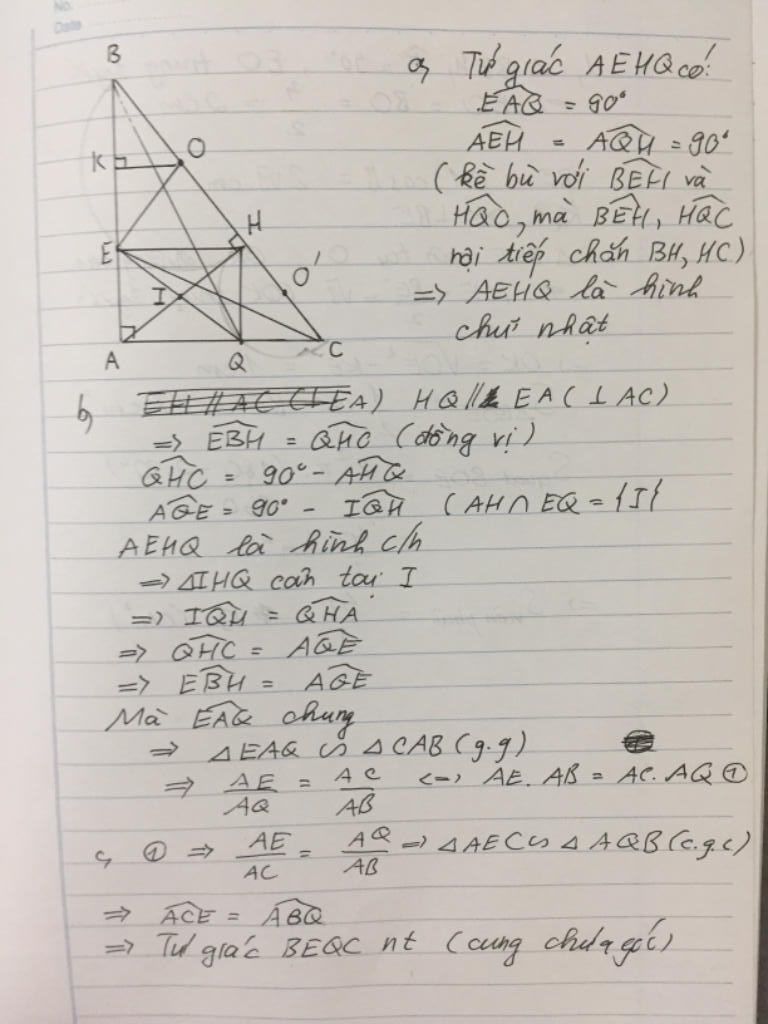 No.
Date
B
K
O
E
H
I
O'
A
Q
C
a, Tứ giác AEHQ có:
\widehat{EAQ} = 90°
\widehat{AEH} = \widehat{AQH} = 90°
(kề bù với \widehat{BEH} và
\widehat{HQC}, mà \widehat{BEH}, \widehat{HQC}
nội tiếp chắn BH, HC)
=> AEHQ là hình
chữ nhật
b, EH // AC (⊥ EA) HQ // EA (⊥ AC)
=> \widehat{EBH} = \widehat{QHC} (đồng vị)
\widehat{QHC} = 90° - \widehat{AHQ}
\widehat{AQE} = 90° - \widehat{IQH} (AH ∩ EQ = {I}
AEHQ là hình c/n
=> ΔIHQ cân tại I
=> \widehat{IQH} = \widehat{QHA}
=> \widehat{QHC} = \widehat{AQE}
=> \widehat{EBH} = \widehat{AQE}
Mà \widehat{EAQ} chung
=> ΔEAQ ∽ ΔCAB (g.g)
=> AE/AQ = AC/AB <=> AE. AB = AC. AQ ①
c, ① => AE/AC = AQ/AB => ΔAEC ∽ ΔAQB (c.g.c)
=> \widehat{ACE} = \widehat{ABQ}
=> Tứ giác BEQC nt (cung chứa góc)